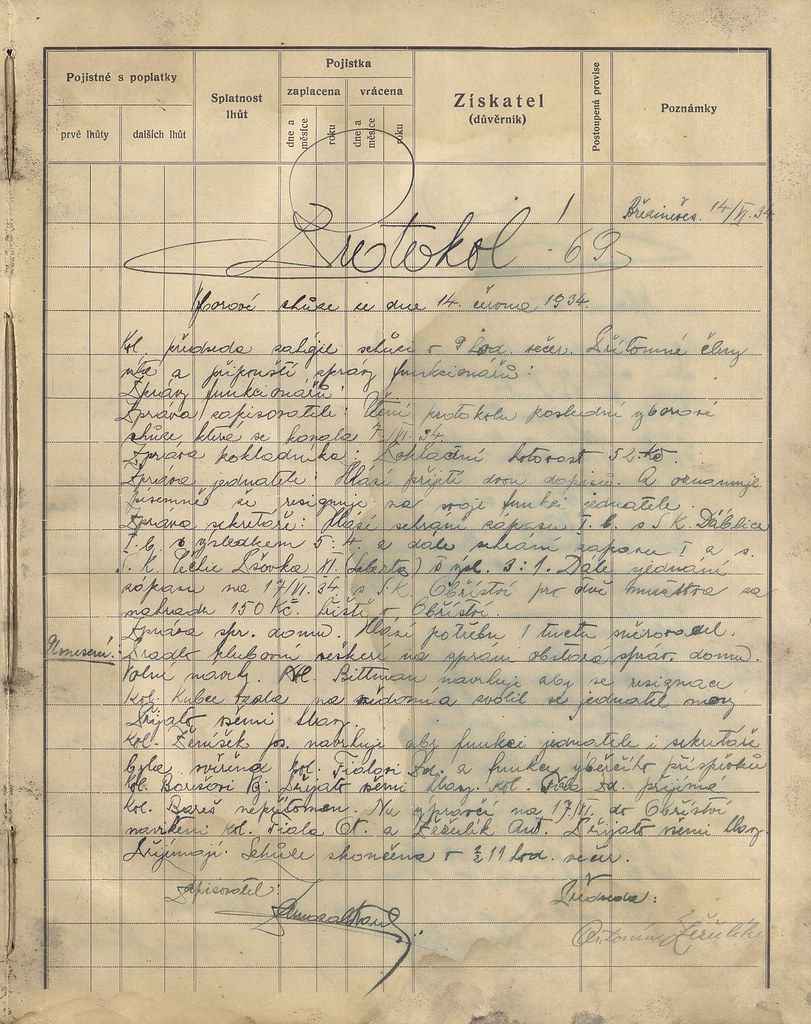 Pojistné s poplatky
prvé lhůty
dalších lhůt
Splatnost
lhůt
Pojistka
zaplacena
vrácena
dne a
měsíce
roku
dne a
měsíce
roku
Získatel
(důvěrník)
Postoupená provise
Poznámky
14/VI. 34
Protokol 69
schůze ze dne 14. června 1934.
Kol. předseda zahájil schůzi o 9 hod. večer. Přítomné členy
a připouští zprávy funkcionářů:
Zprávy funkcionářů:
Zpráva zapisovatele: Čtení protokolu poslední výborové
schůze, která se konala 7/VI. 34.
Zpráva pokladníka: Pokladní hotovost 52 Kč.
Zpráva jednatele: Hlásí přijetí dvou dopisů. A oznamuje
písemně že resignuje na svoje funkci jednatele.
Zpráva sekretáře: Hlásí sehrání zápasu I. b. s S.K. Ďáblice
I. b. s výsledkem 5:4. a dále sehrání zápasu I a s.
S. K. Čechie Lšovka XI (Liberta) s výsl. 3:1. Dále sjednání
zápasu na 17/VI. 34 s S.K. Obříství pro dvě mužstva za
náhradu 150 Kč. hřiště v Obříství.
Zpráva spr. domu. Hlásí potřebu 1 tuctu
Usnesení: Prádlo klubovní veškeré na vyprání obstará správ. domu.
Volné návrhy. Kol. Bittman navrhuje aby se resignace
Kol. Kubce vzala na vědomí a zvolil se jednatel nový
Přijato všemi hlasy.
Kol. Ženíšek jos. navrhuje aby funkci jednatele i sekretáře
byla svěřena kol. Fialovi Zd. a funkce výběrčího příspěvků
kol. Barešovi Přijato všemi hlasy. kol. Fiala Zd. přijímá
Kol. Bareš nepřítomen. Na na 17./VI. do Obříství
navrženi kol. Fiala Ot. a Žežulík Ant. Přijato všemi hlasy.
Přijímají. Schůze skončena o 11 hod. večer.
Zapisovatel:
Předseda:
Antonín Žežulík